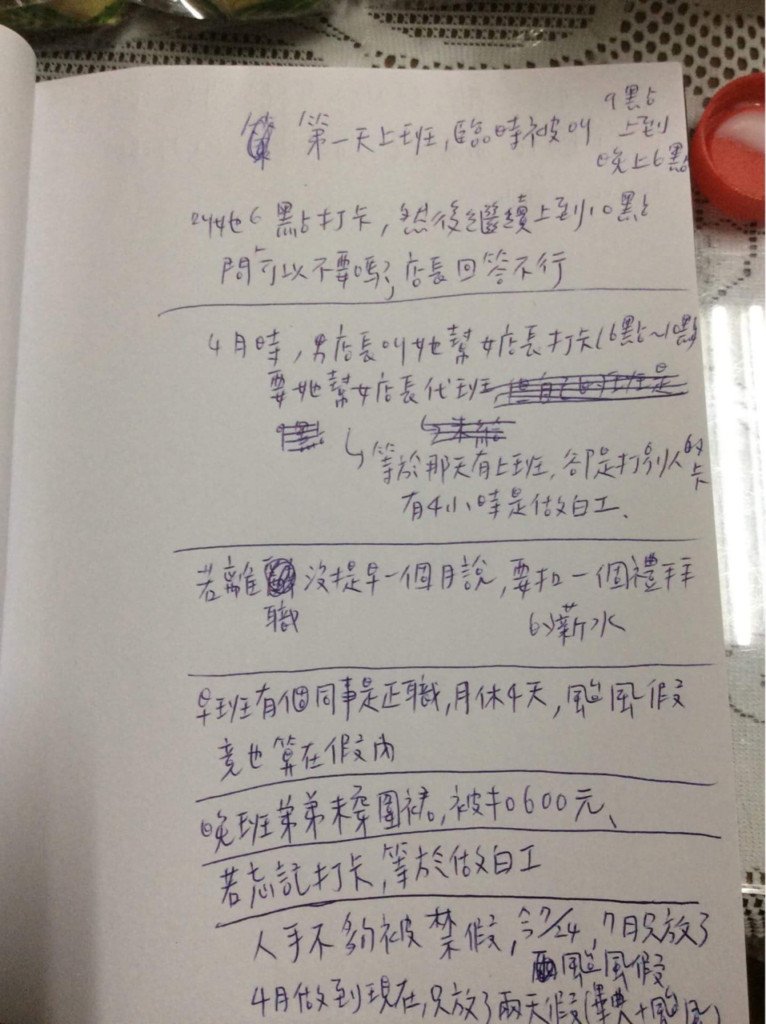 第一天上班,臨時被叫 9點
上到
晚上6點
叫她6點打卡,然後繼續上到10點
問可以不要嗎?,店長回答不行
4月時,男店長叫她幫女店長打卡(6點~10點)
要她幫女店長代班,但自己的班是
9點 ↳未給
↳等於那天有上班,卻是打別人的卡
有4小時是做白工、
若離職沒提早一個月說,要扣一個禮拜
的薪水
早班有個同事是正職,月休4天,颱風假
竟也算在假內
晚班弟弟未穿圍裙,被扣600元、
若忘記打卡,等於做白工
人手不夠被禁假,今7/24,7月只放了
颱風假
4月做到現在,只放了兩天假(畢典+颱風